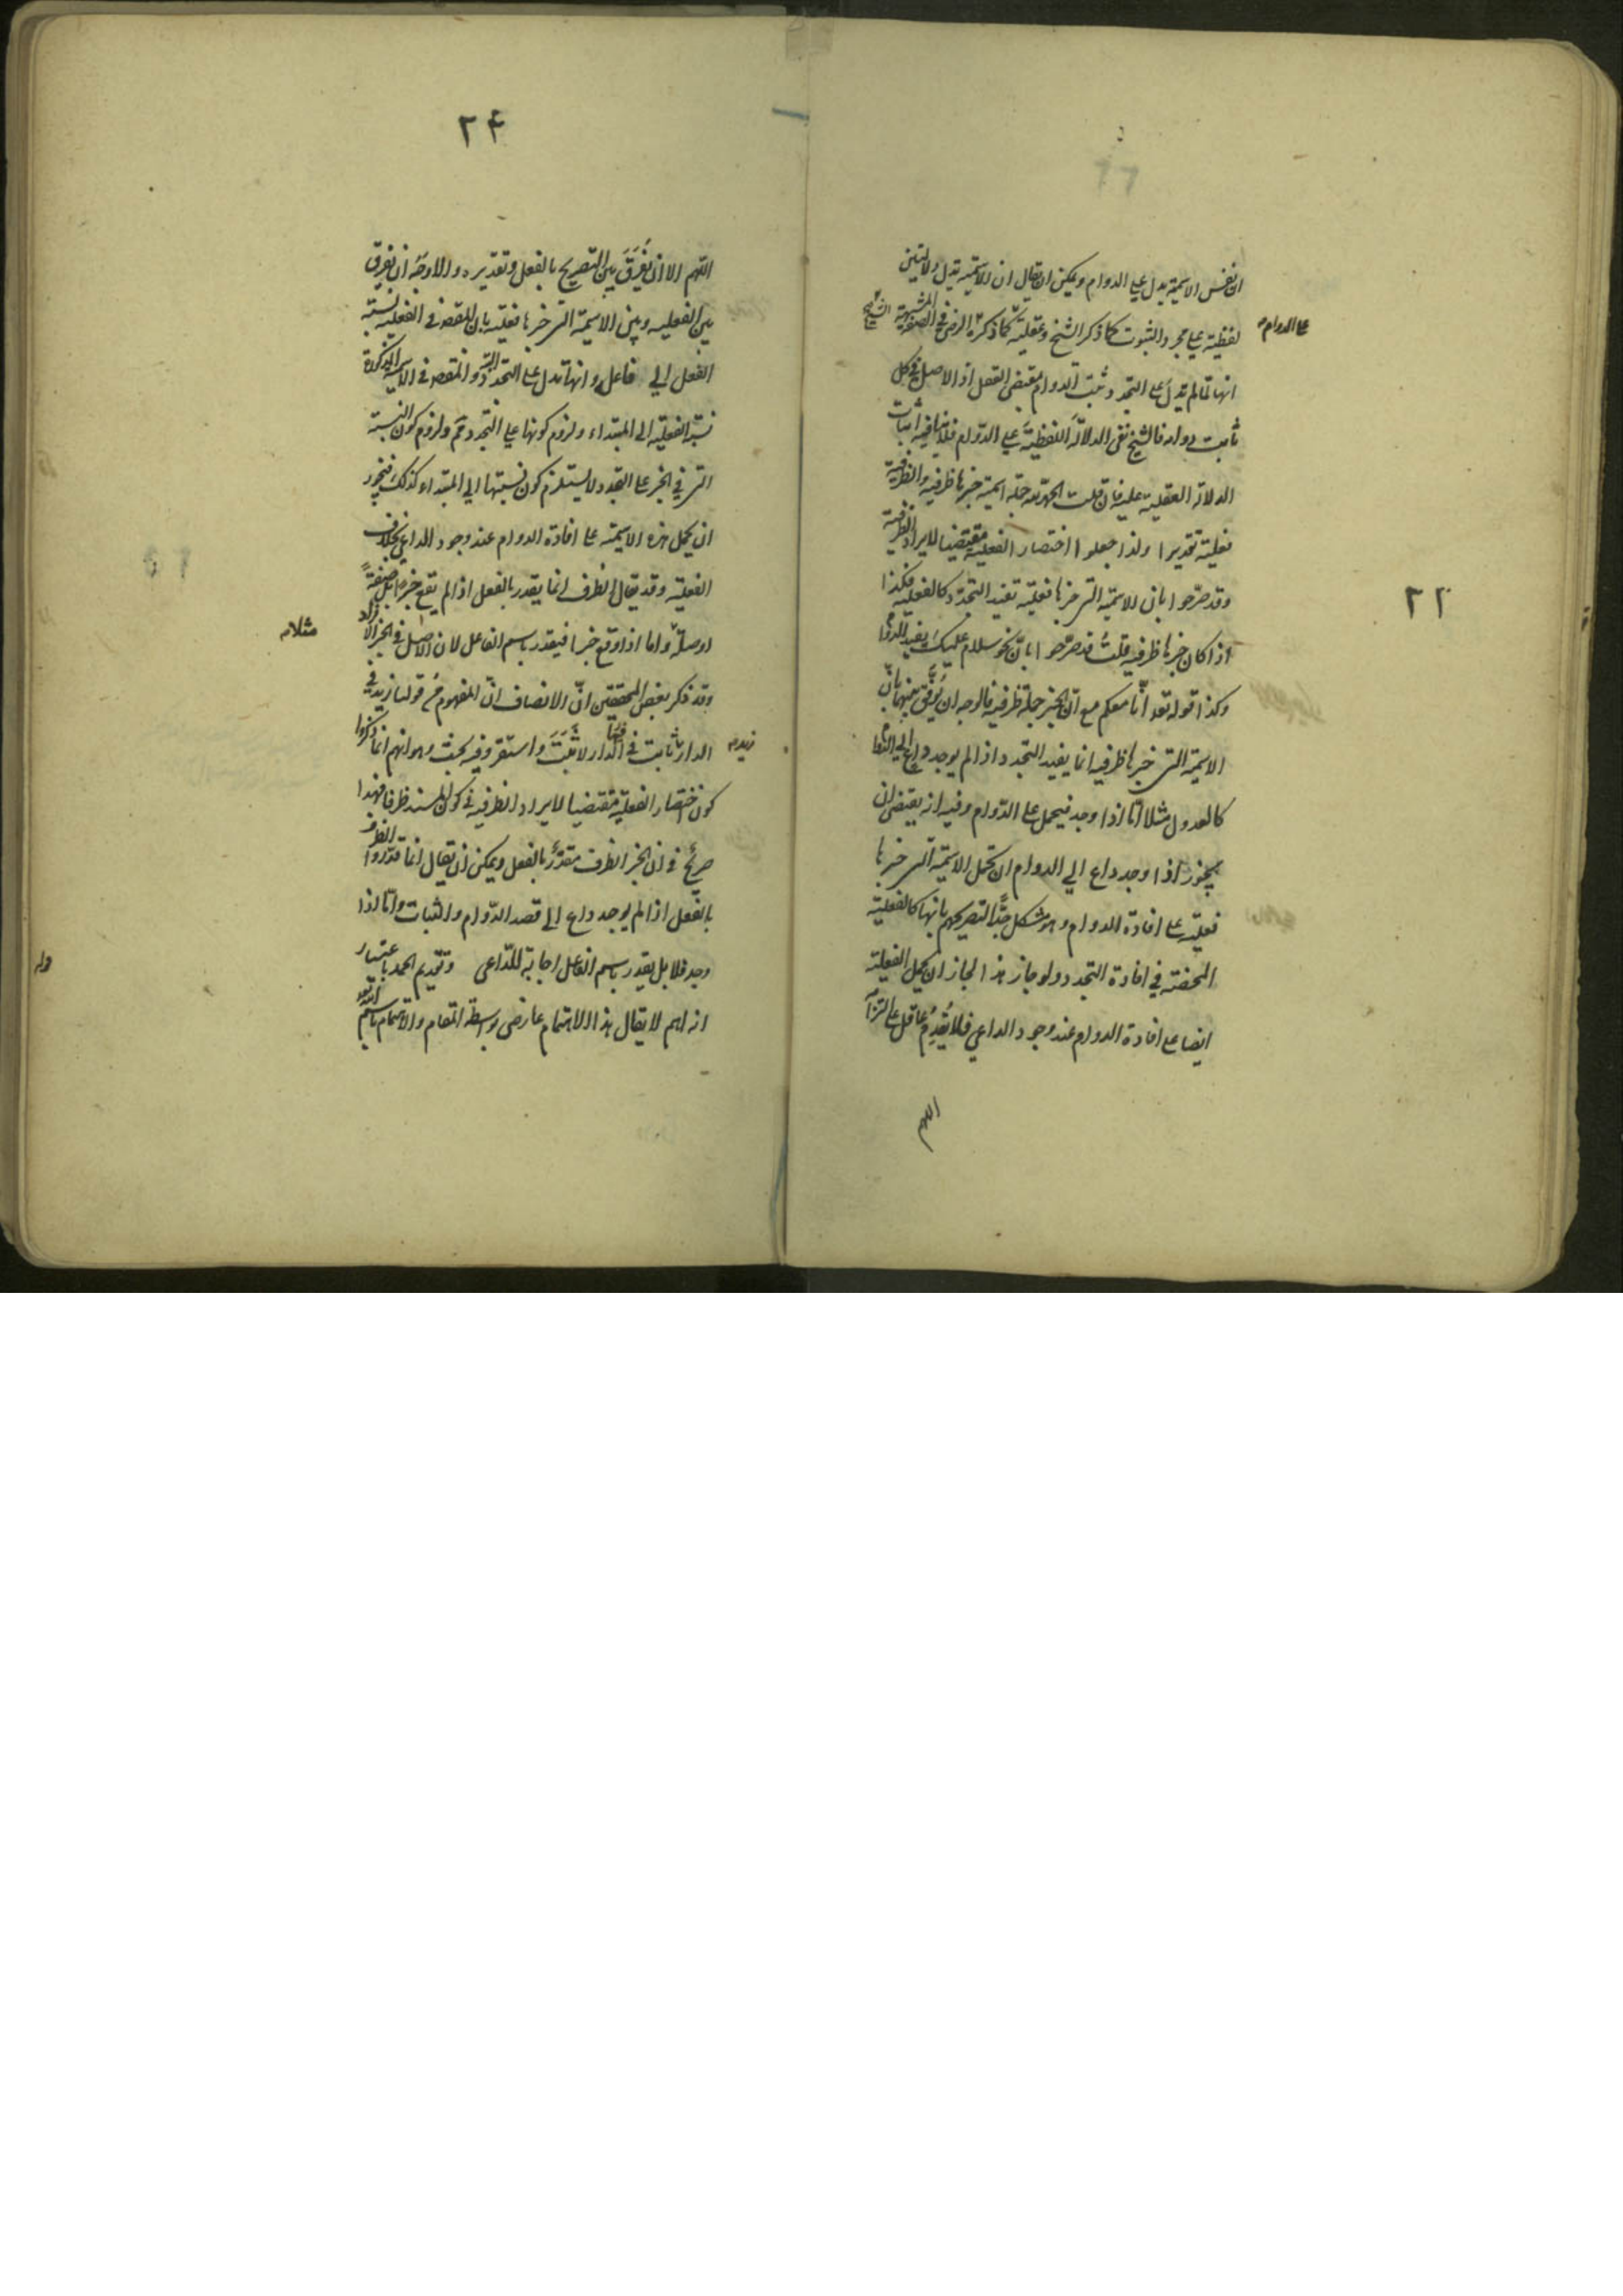 ان نفس الاسمية يدل علي الدوام ويمكن ان يقال ان الاسمية تدل دلالتين
لفظية علي مجرد الثبوت كما ذكر الشيخ وعقلية كما ذكره الرضي في الصفة المشبهة
علي الدوام
انها لما لم تدل علي التجدد ثبت الدوام بمقتضي العقل اذ الاصل في كل
ثابت دوامه فالشيخ نفي الدلالة اللفظية علي الدوام فلا ينافيه اثبات
الدلالة العقلية عليه فان قلت الحمد لله جملة اسمية خبرها ظرفية والظرفية
فعلية تقديرا ولذا جعلوا اختصار الفعلية مقتضيا لايراد الظرفية
وقد صرحوا بان الاسمية التي خبرها فعلية تفيد التجدد كالفعلية فكذا
اذا كان خبرها ظرفية قلت قد صرحوا بان نحو سلام عليك يفيد الدوام
٢٢
وكذا قوله تعه انا معكم مع ان الخبر جملة ظرفية فالوجه ان يوفق بينهما بان
الاسمية التي خبرها ظرفية انما يفيد التجدد اذا لم يوجد داع الي الدوام
كالعدول مثلا اما اذا وجد فيحمل علي الدوام وفيه انه يقتضي ان
يجوز اذا وجد داع الي الدوام ان تحمل الاسمية التي خبرها
فعلية علي افادة الدوام وهو مشكل جدا لتصريحهم بانها كالفعلية
المحضة في افادة التجدد ولو جاز هذا لجاز ان يحمل الفعلية
ايضا علي افادة الدوام عند وجود الداعي فلا يقدم عاقل علي التزامه
اللهم
٢٤
اللهم الا ان يفرق بين التصريح بالفعل وتقديره والاوجه ان يفرق
بين الفعلية وبين الاسمية التي خبرها فعلية بان المقصود في الفعلية نسبة
الفعل الي فاعله وانها تدل علي التجدد والمقصود في الاسمية المذكورة
نسبة الفعلية الي المبتداء ولزوم كونها علي التجدد مم ولزوم كون النسبة
التي في الخبر علي التجدد لا يستلزم كون نسبتها الي المبتداء كذلك فيجوز
ان يحمل هذه الاسمية علي افادة الدوام عند وجود الداعي بخلاف
الفعلية وقد يقال الظرف انما يقدر بالفعل اذا لم يقع خبرا بل صفة
او صلة واما اذا وقع خبرا فيقدر باسم الفاعل لان الاصل في الخبر الافراد
مثلا
وقد ذكر بعض المحققين ان الانصاف ان المفهوم من قولنا زيد في
الدار ثابت في الدار لا ثبت واستقر وفيه بحث وهو انهم انما ذكروا
كون اختصار الفعلية مقتضيا لايراد الظرفية في كون المسند ظرفا فهذا
صريح في ان الخبر الظرف مقدر بالفعل ويمكن ان يقال انما قدروا الظرف
بالفعل اذا لم يوجد داع الي قصد الدوام والثبات واما اذا
وجد فلا بل يقدر باسم الفاعل اجابة للداعي وتقديم الحمد باعتبار
انه اهم لا يقال هذا الاهتمام عارضي بواسطة المقام والاهتمام باسم